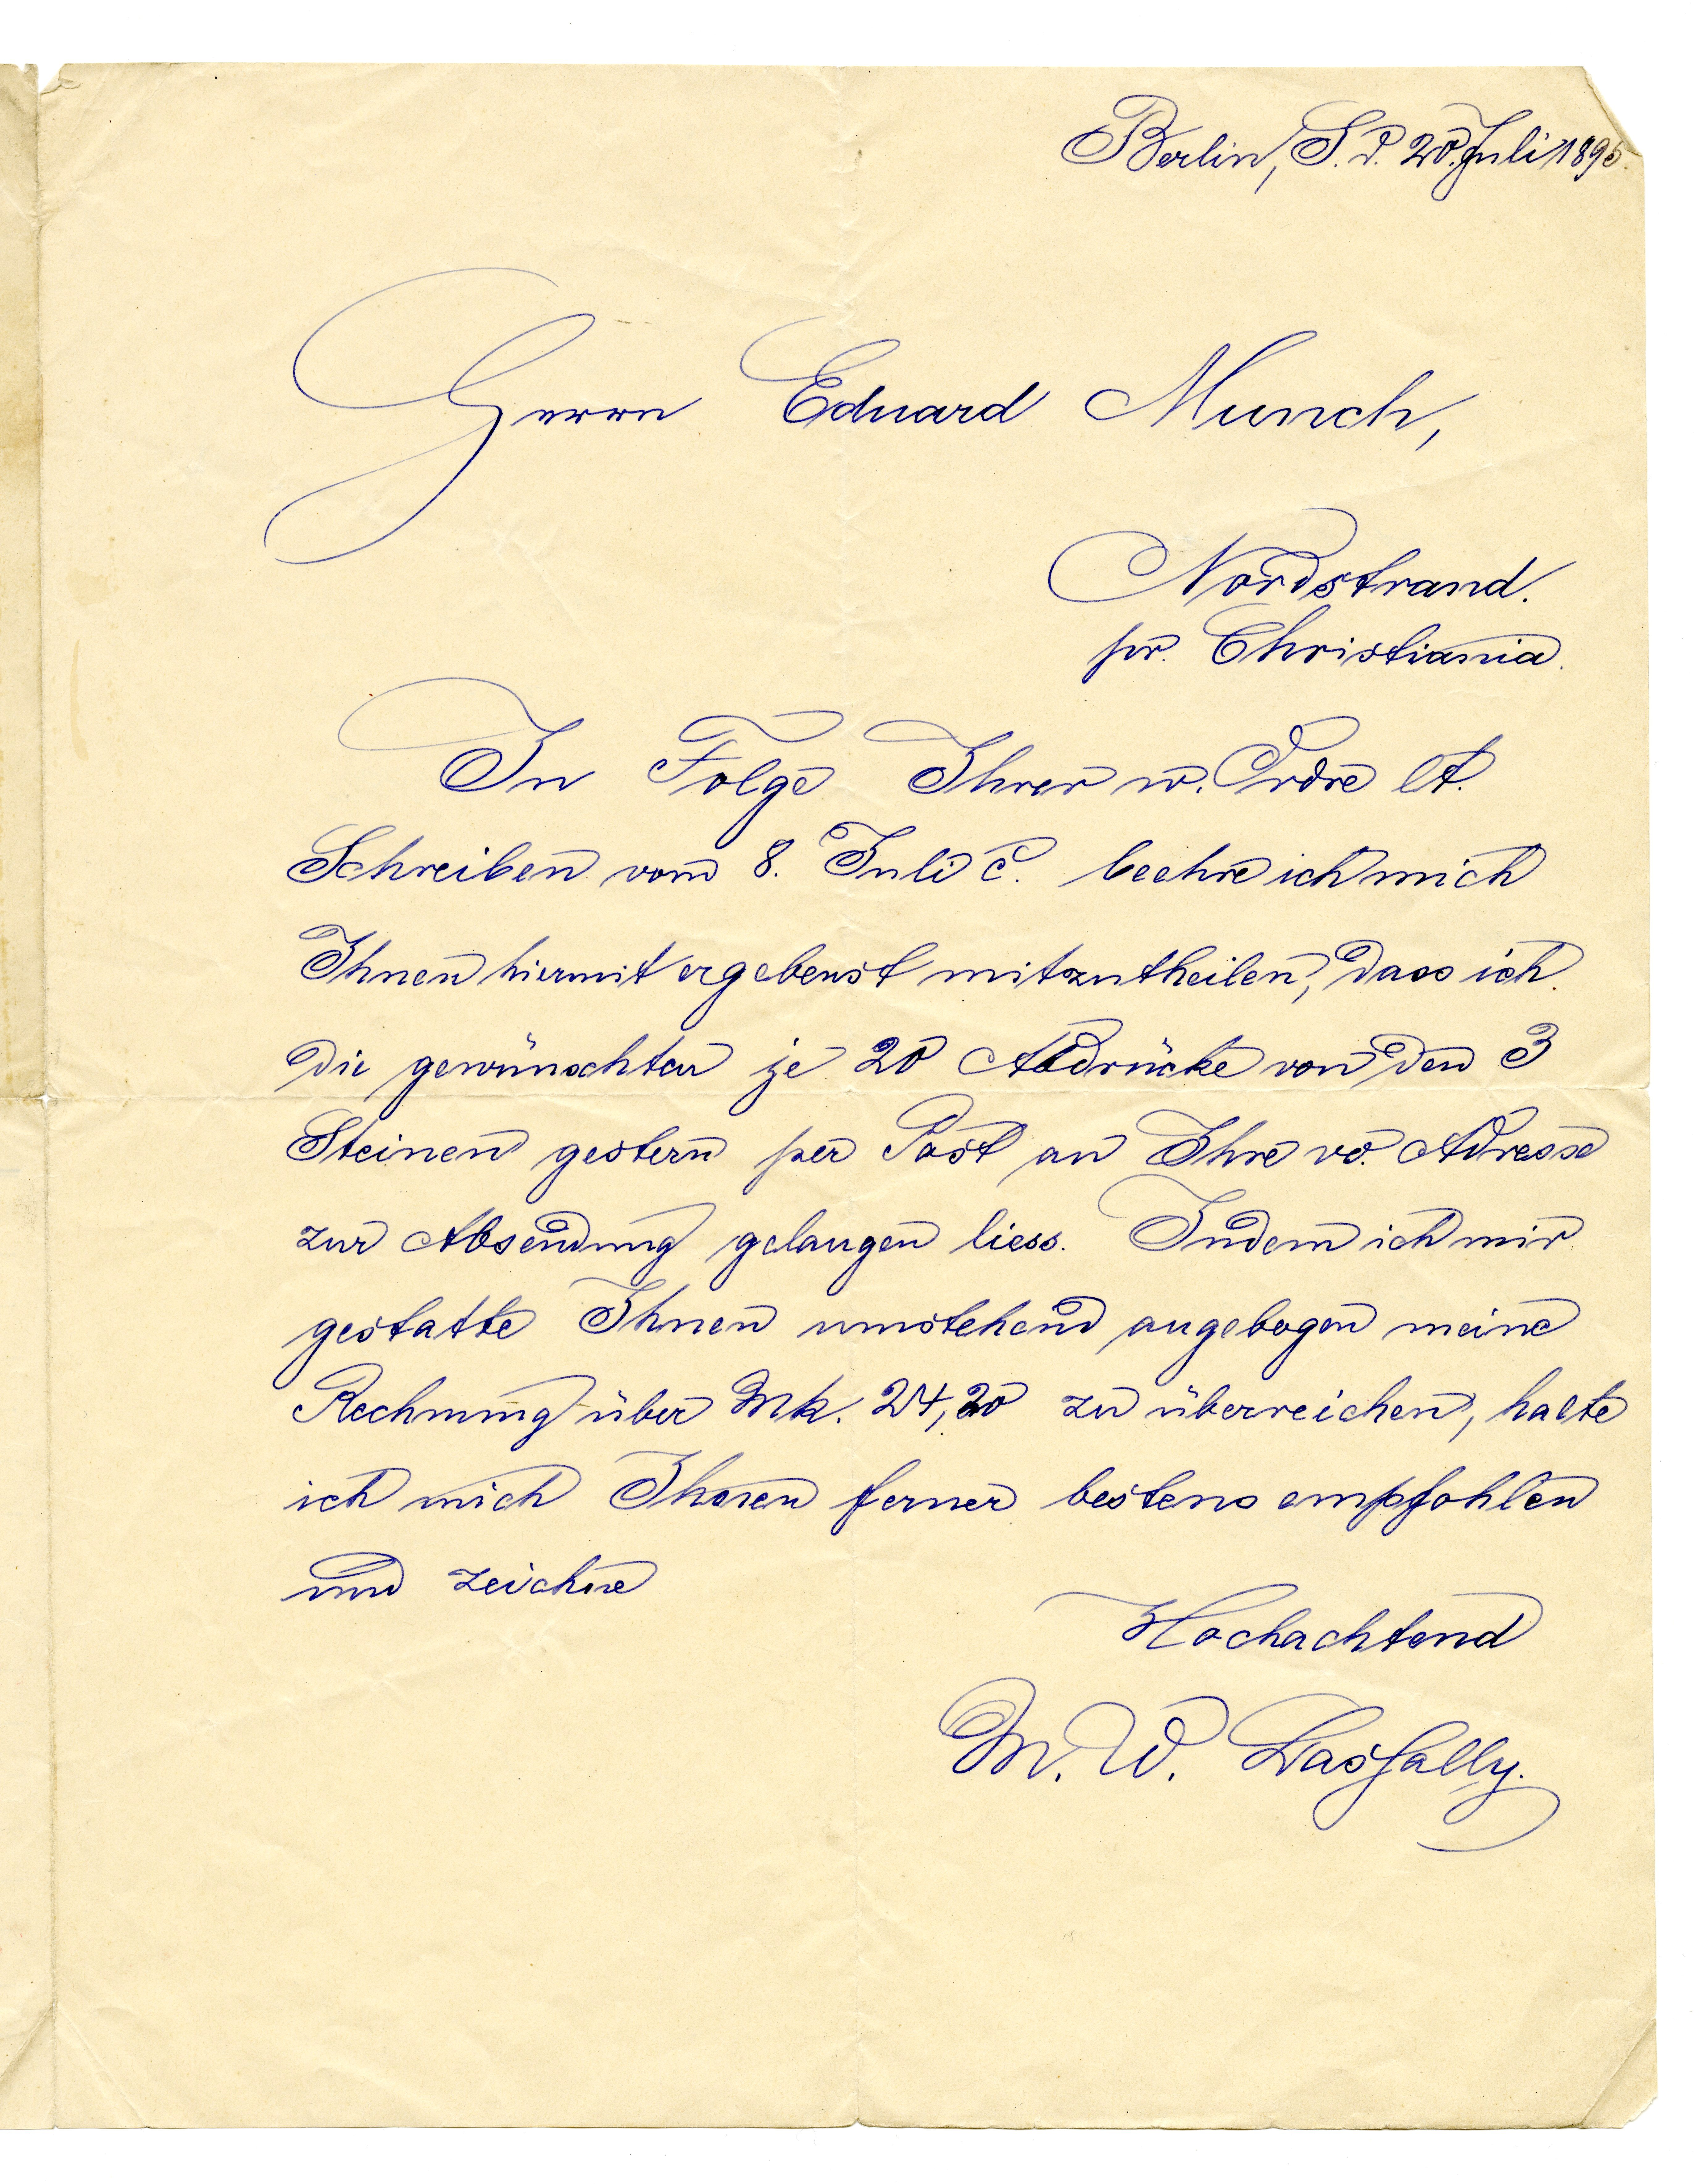 Berlin, S. d. 20. Juli 1895.
Herrn Eduard Munch,
Nordstrand.
pr. Christiania.
In Folge Ihrer w. Ordre lt.
Schreiben vom 8. Juli c. beehre ich mich
Ihnen hiermit ergebenst mitzutheilen, dass ich
die gewünschten je 20 Abdrücke von den 3
Steinen gestern per Post an Ihre w. Adresse
zur Absendung gelangen liess. Indem ich mir
gestatte Ihnen umstehend angebogen meine
Rechnung über Mk. 24,20 zu überreichen, halte
ich mich Ihnen ferner bestens empfohlen
und zeichne
Hochachtend
M. W. Lassally.